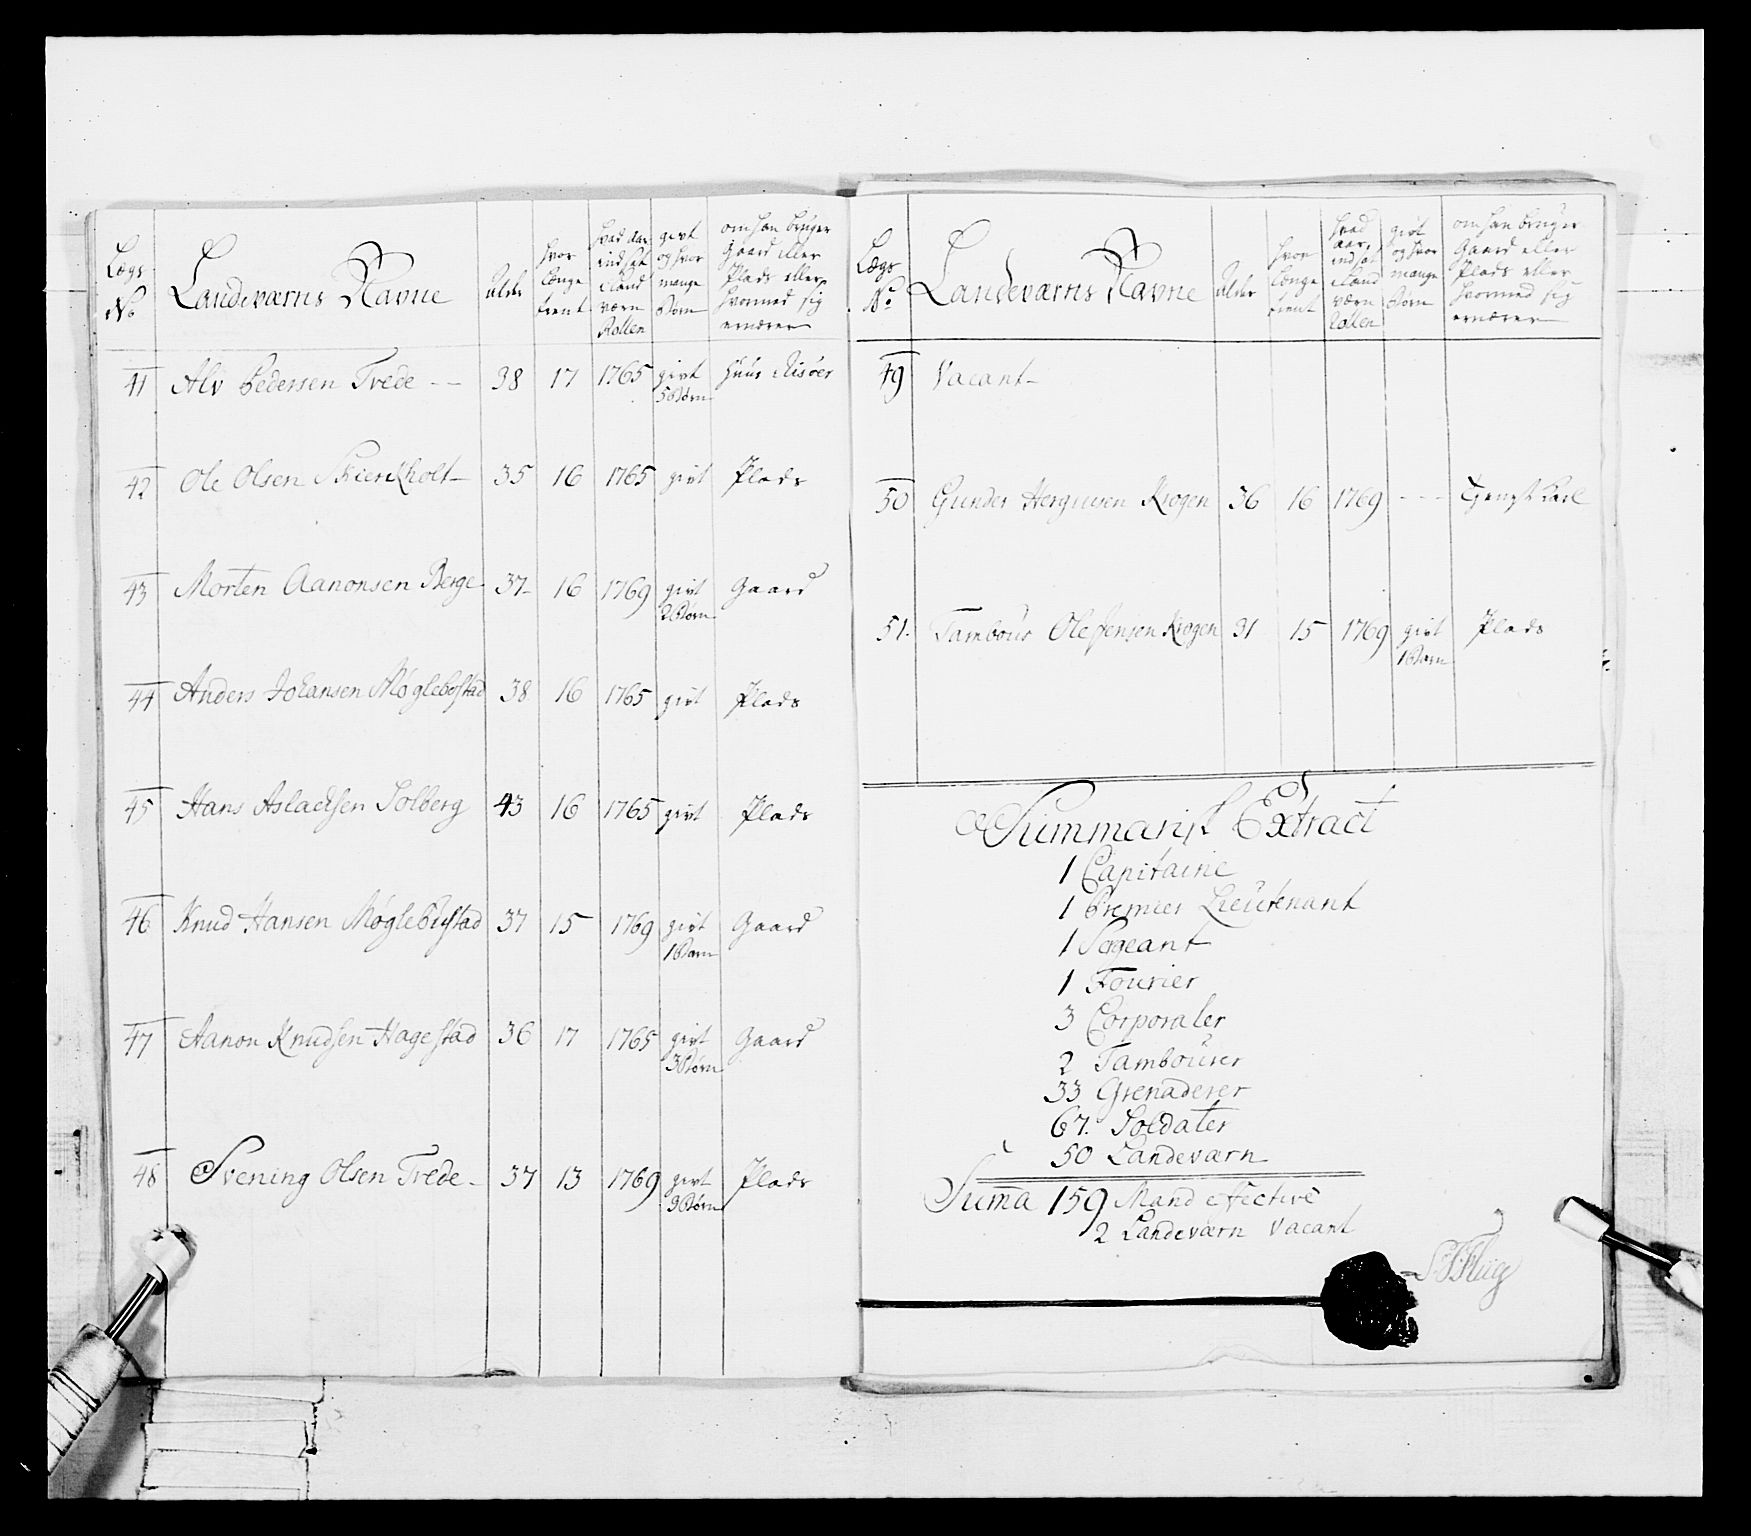 Lægs No
Landeværns Navne
Alder
hvor længe tient
hvad aar indsat i Land værn Rollen
givt og hvor mange Børn
om han bruger Gaard eller Plads eller hvormed sig ernærer
41 Alv Pedersen Trede -- 38 17 1765 givt 5 Børn huus Risøer
42 Ole Olsen Skierkholt 35 16 1765 givt Plads
43 Morten Aanonsen Berge 37 16 1769 givt 2 Børn Gaard
44 Anders Johansen Møglebostad 38 16 1765 givt Plads
45 Hans Aslachsen Solberg 43 16 1765 givt Plads
46 Knud Hansen Møglebustad 37 15 1769 givt 1 Barn Gaard
47 Aanon Knudsen Hagestad 36 17 1765 givt 3 Børn Gaard
48 Svening Olsen Trede - 37 13 1769 givt 3 Børn Plads
Lægs No
Landeværns Navne
Alder
hvor længe tient
hvad aar, indsat i Land værn Rollen
givt og hvor mange Børn
om han bruger Gaard eller Plads eller hvormed sig ernærer
49 Vacant
50 Gunder Krogen 36 16 1769 ---
51. Tambour Ole Jensen Krogen 31 15 1769 givt 1 Barn Plads
Summarisk Extract
1 Capitaine
1 Premier Lieutenant
1 Sergeant
1 Fourier
3 Corporaler
2 Tambourer
33 Grenaderer
67. Soldater
50 Landeværn
Suma 159 Mand efective
2 Landeværn Vacant